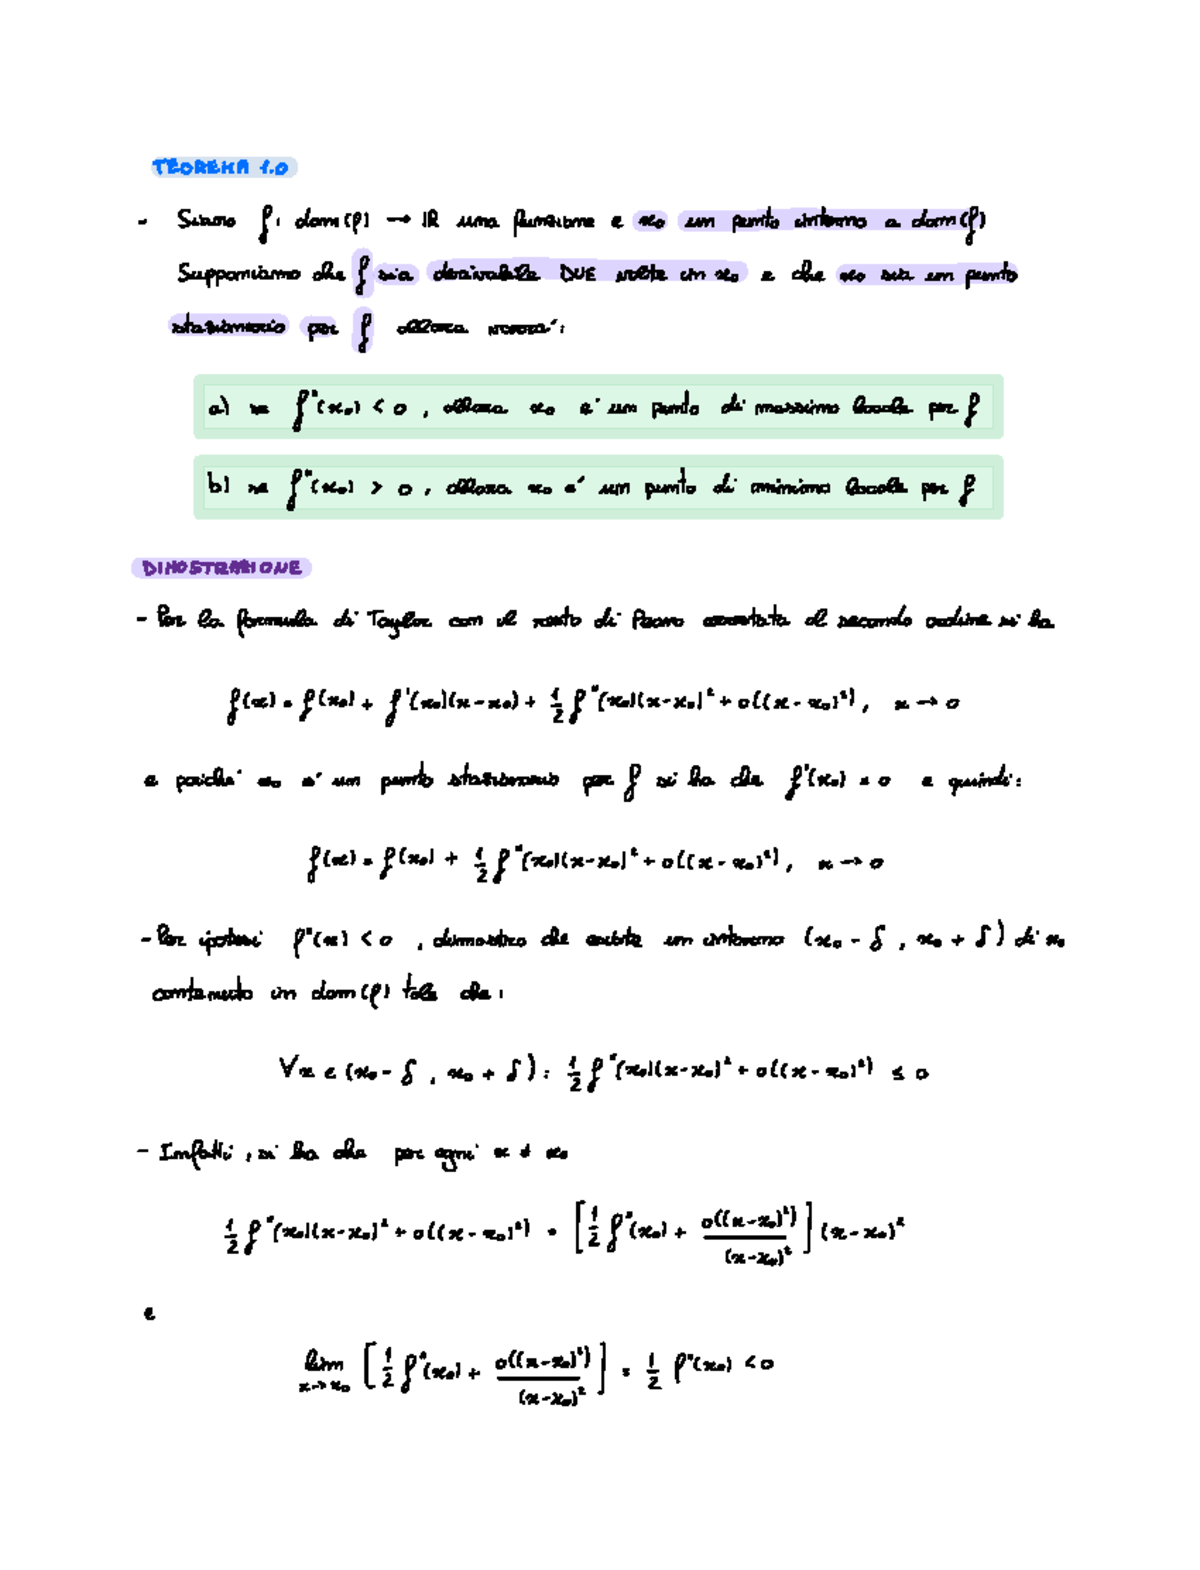 TEOREMA 1.0
- Siano f: dom(f) → IR una funzione e x₀ un punto interno a dom(f)
Supponiamo che f sia derivabile DUE volte in x₀ e che x₀ sia un punto
stazionario per f allora avremo':
a) se f"(x₀) < 0 , allora x₀ e' un punto di massimo locale per f
b) se f"(x₀) > 0 , allora x₀ e' un punto di minimo locale per f
DIMOSTRAZIONE
- Per la formula di Taylor con il resto di Peano arrestata al secondo ordine si ha
f(x) = f(x₀) + f'(x₀)(x-x₀) + 1/2 f"(x₀)(x-x₀)² + o((x-x₀)²), x → 0
e poiche' x₀ e' un punto stazionario per f si ha che f'(x₀) = 0 e quindi:
f(x) = f(x₀) + 1/2 f"(x₀)(x-x₀)² + o((x-x₀)²), x → 0
- Per ipotesi f"(x) < 0 , dimostro che esiste un intorno (x₀ - δ , x₀ + δ) di x₀
contenuto in dom(f) tale che:
∀x ∈ (x₀ - δ , x₀ + δ) : 1/2 f"(x₀)(x-x₀)² + o((x-x₀)²) ≤ 0
- Infatti , si ha che per ogni x ≠ x₀
1/2 f"(x₀)(x-x₀)² + o((x-x₀)²) = [1/2 f"(x₀) + o((x-x₀)²)/(x-x₀)²] (x-x₀)²
e
lim x→x₀ [1/2 f"(x₀) + o((x-x₀)²)/(x-x₀)²] = 1/2 f"(x₀) < 0